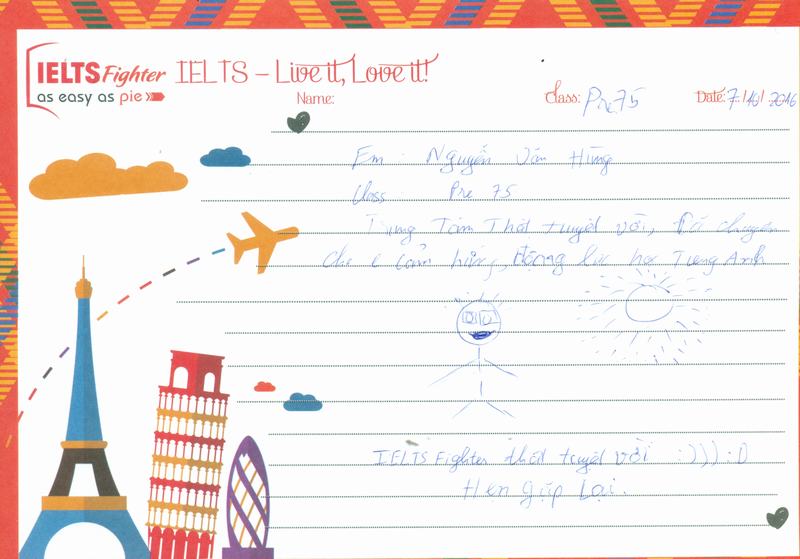 IELTS Fighter
as easy as pie
IELTS – Live it, Love it!
Name:
Class: Pre 75
Date: 7/10/2016
Em : Nguyễn Văn Hùng
Class : Pre 75
Trung Tâm Thật tuyệt vời, Đã chuyền
cho e cảm hứng, động lực học Tiếng Anh
IELTS Fighter thật tuyệt vời :))) :D
Hẹn gặp lại.